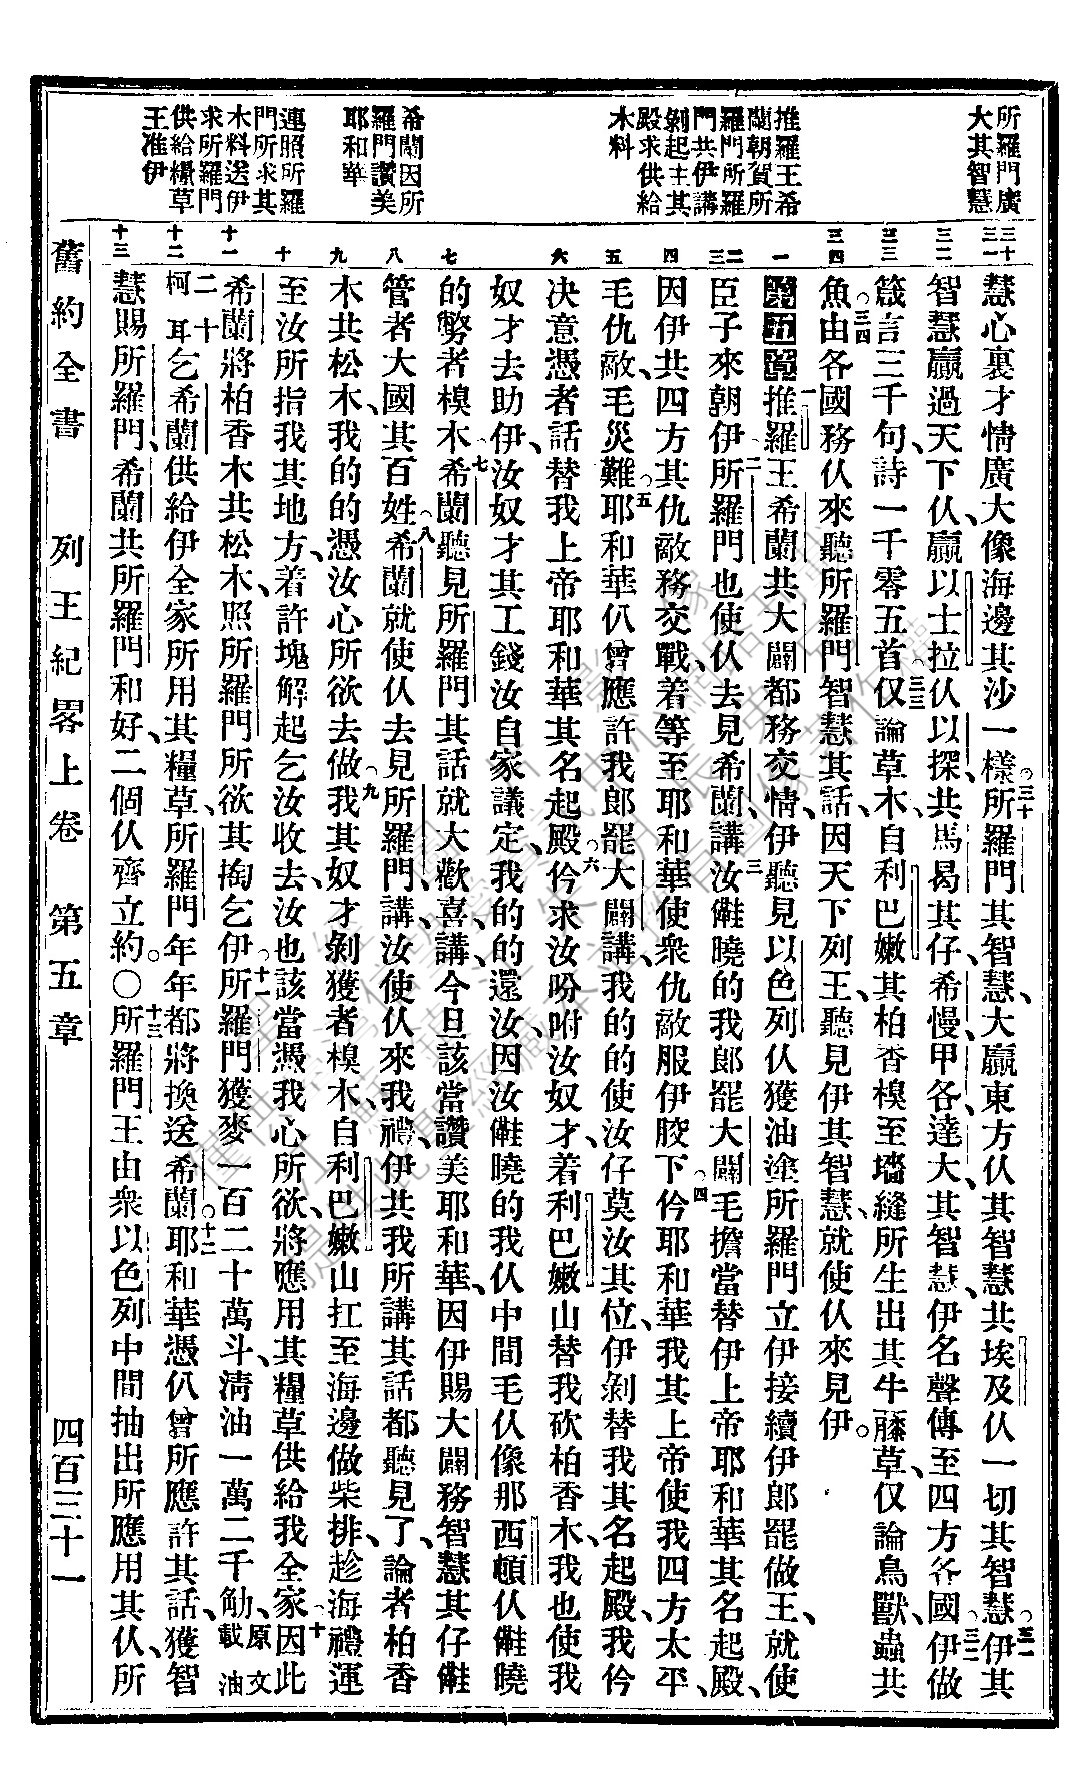 所羅門廣
大其智慧
推羅王希
蘭朝賀所
羅門所羅
門共伊講
剝起主其
殿求供給
木料
希蘭因所
羅門讚美
耶和華
連照所羅
門所求其
木料送伊
求所羅門
供給糧草
王准伊
三十
三一
三二
三三
三四
一
二
三
四
五
六
七
八
九
十
十一
十二
十三
慧心裏才情廣大像海邊其沙一樣。三十所羅門其智慧、大贏東方仈其智慧共埃及仈一切其智慧。三一伊其
智慧贏過天下仈、贏以士拉仈以探、共馬曷其仔、希慢甲各、達大其智慧、伊名聲傳至四方各國。三二伊做
箴言三千句、詩一千零五首。三三仅論草木、自利巴嫩其柏香樹至墻縫所生出其牛藤草、仅論鳥獸蟲共
魚。三四由各國務仈來聽所羅門智慧其話、因天下列王、聽見伊其智慧、就使仈來見伊。
第五章一推羅王希蘭共大闢都務交情、伊聽見以色列仈獲油塗所羅門立伊接續伊郎罷做王、就使
臣子來朝伊。二所羅門也使仈去見希蘭、講、三汝㑚曉的我郎罷大闢毛擔當替伊上帝耶和華其名起殿、
因伊共四方其仇敵務交戰、着等至耶和華使衆仇敵服伊骹下。四伶耶和華我其上帝使我四方太平、
毛仇敵、毛災難。五耶和華仈曾應許我郎罷大闢講、我的的使汝仔莫汝其位、伊剝替我其名起殿、我伶
決意憑者話、替我上帝耶和華其名起殿。六伶求汝吩咐汝奴才、着利巴嫩山替我砍柏香木、我也使我
奴才去助伊、汝奴才其工錢、汝自家議定、我的的還汝、因汝㑚曉的我仈中間毛仈像那西頓仈㑚曉
的斃者樹木。七希蘭聽見所羅門其話就大歡喜、講、今旦該當讚美耶和華、因伊賜大闢務智慧其仔㑚
管者大國其百姓。八希蘭就使仈去見所羅門、講、汝使仈來我禮、伊共我所講其話都聽見了、論者柏香
木共松木、我的的憑汝心所欲去做。九我其奴才剝獲者樹木、自利巴嫩山扛至海邊做柴排、趁海禮運
至汝所指我其地方、着許塊解起乞汝收去、汝也該當憑我心所欲、將應用其糧草供給我全家。十因此
希蘭將柏香木共松木、照所羅門所欲其掏乞伊。十一所羅門獲麥一百二十萬斗、清油一萬二千觔、原文載油
二十柯耳乞希蘭供給伊全家所用其糧草、所羅門年年都將換送希蘭。十二耶和華憑仈曾所應許其話、獲智
慧賜所羅門、希蘭共所羅門和好、二個仈齊立約。〇十三所羅門王由衆以色列中間抽出所應用其仈、所
舊約全書　列王紀畧上卷　第五章　四百三十一